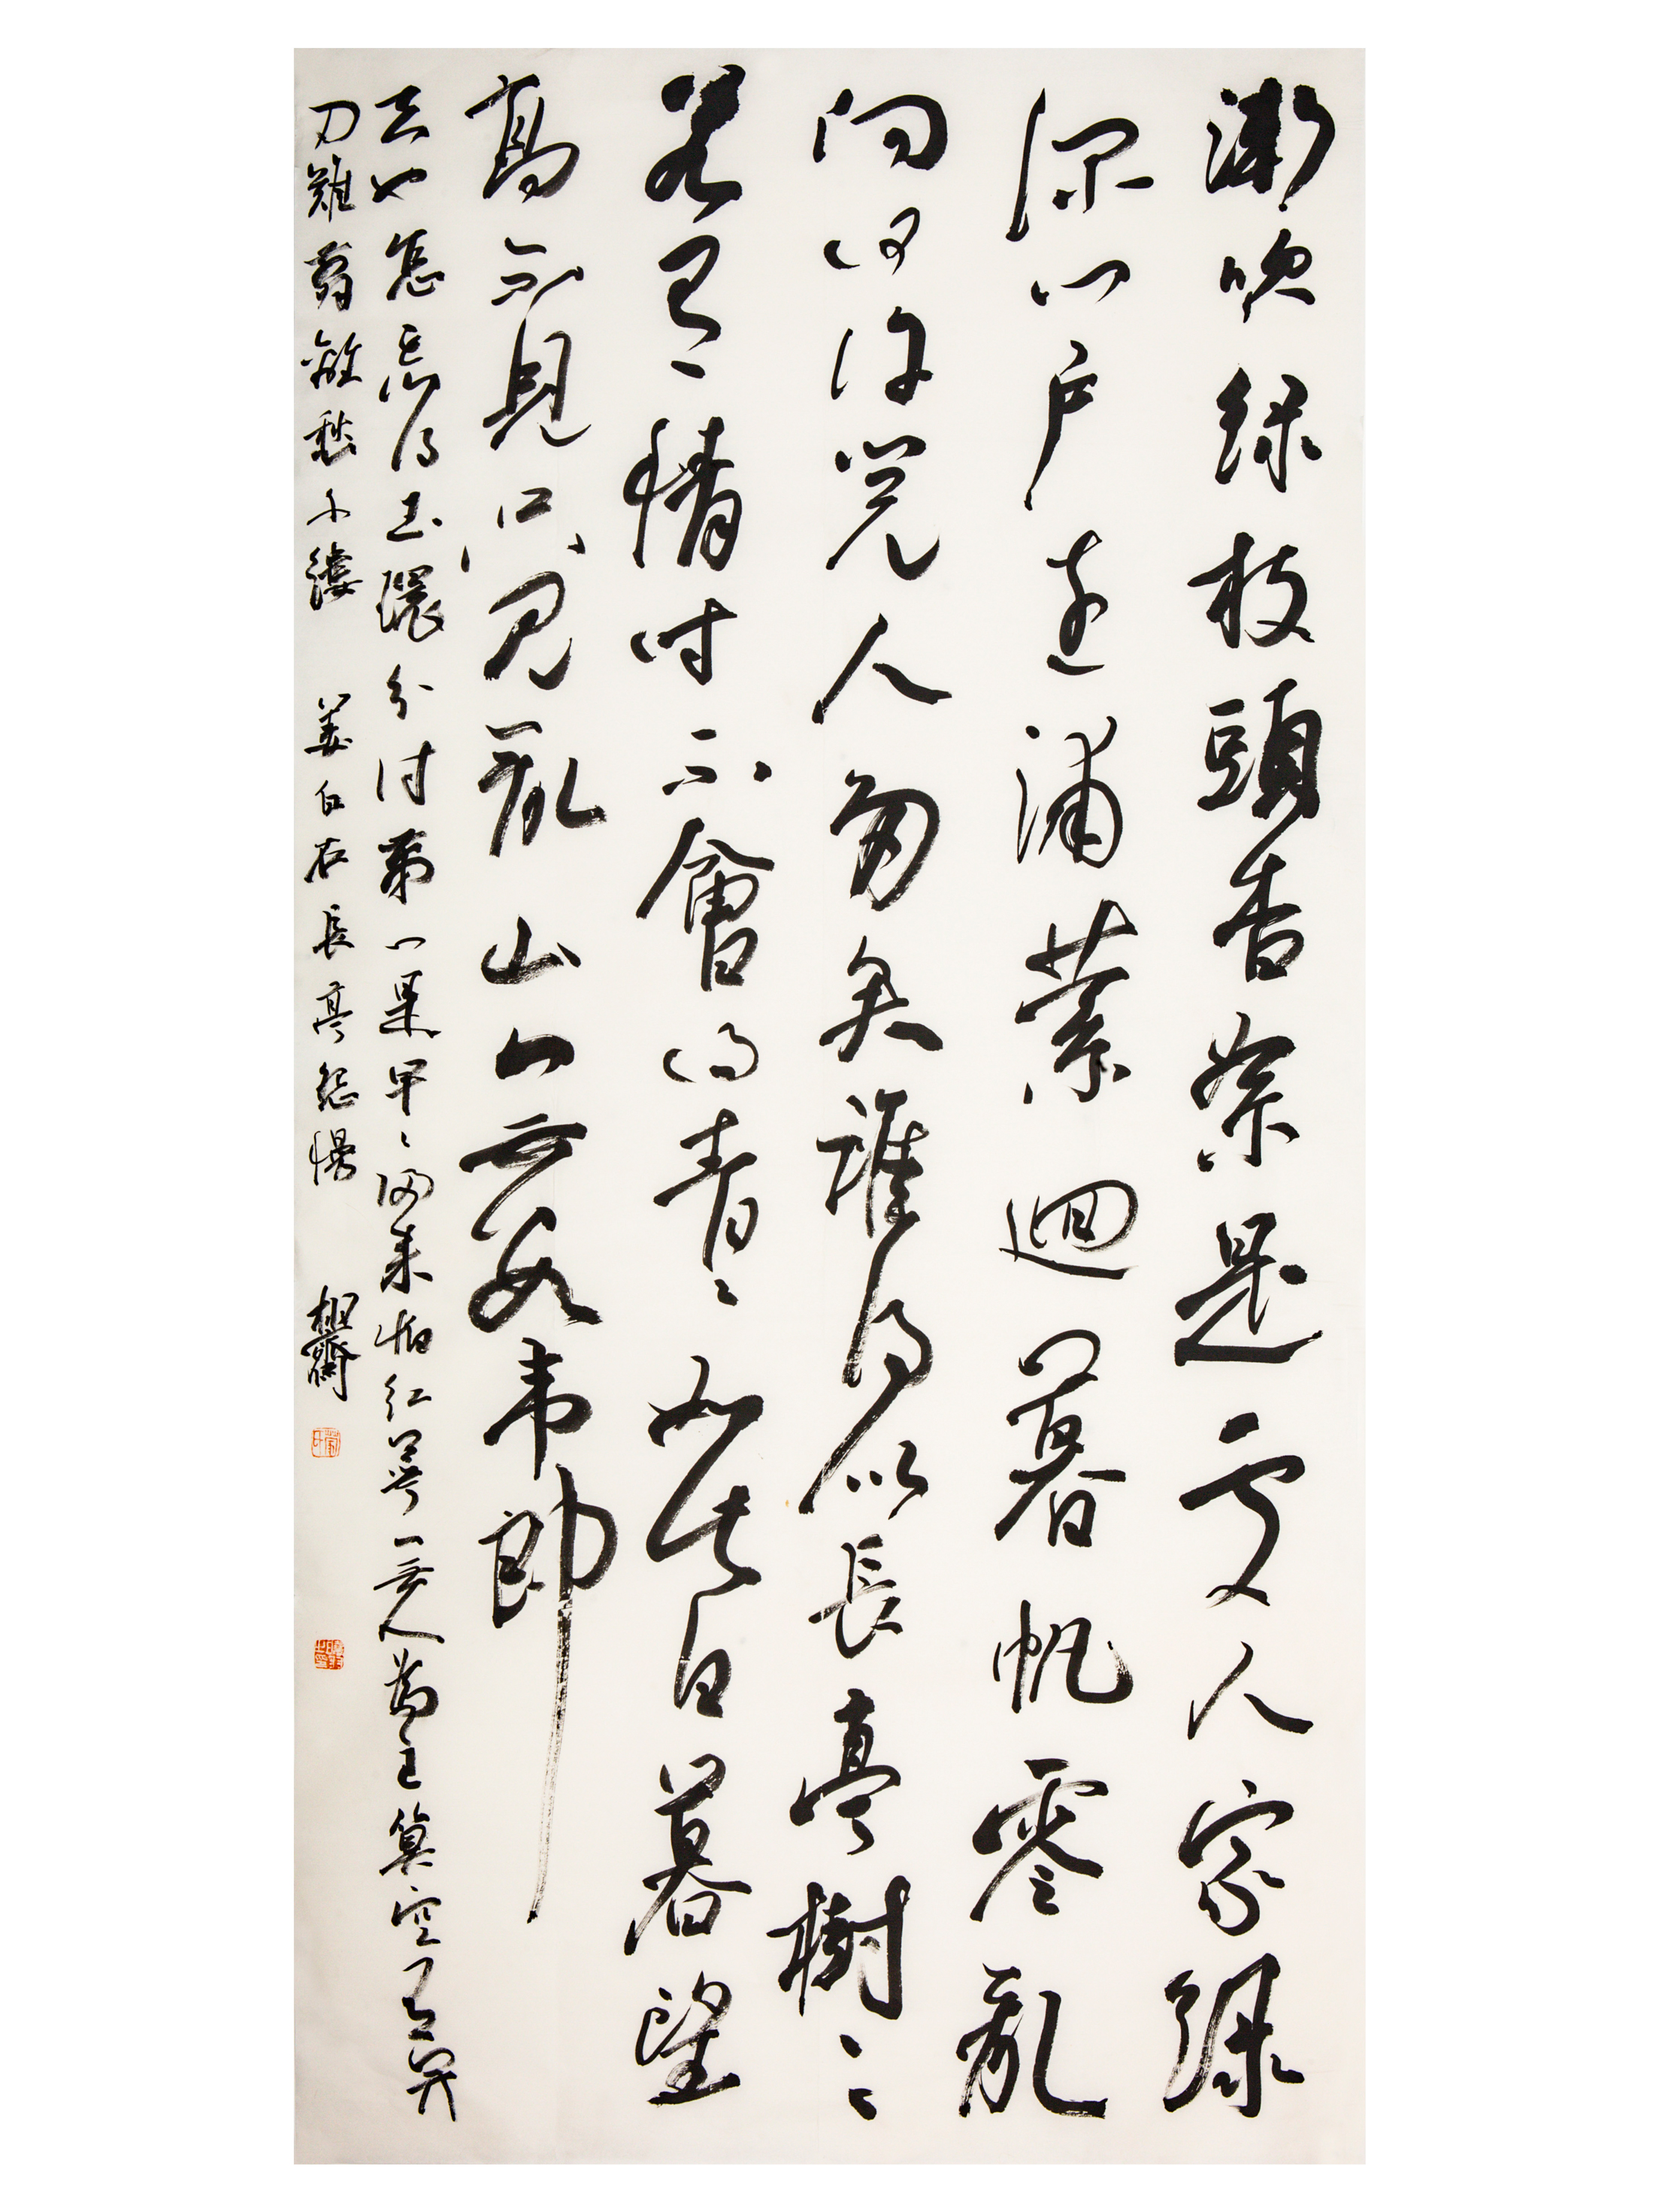 漸吹綠枝頭香絮是處人家綠
深門戶遠浦縈迴暮帆零亂
向何許閱人多矣誰得似長亭樹〻
若有情時不會得青〻如此日暮望
高不見只見亂山山無數韋郎
去也怎忘得玉環分付第一是早〻歸來怕紅萼無人為主算空有并
刀難剪離愁千縷 姜白石長亭怨慢